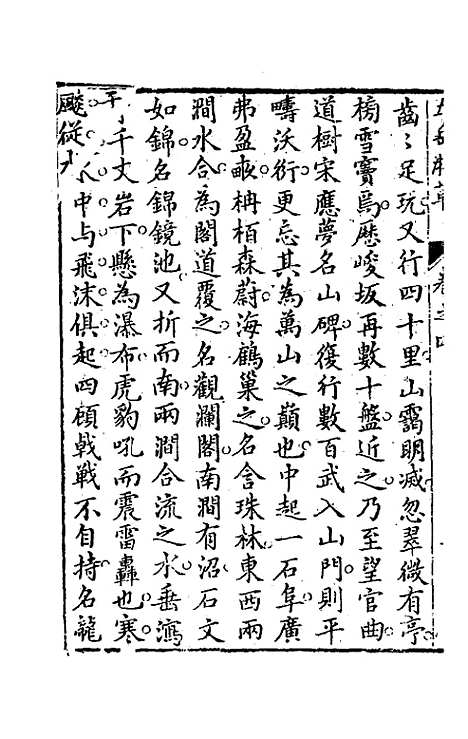 五岳游草 卷之四
齒〻足玩又行四十里山靄明滅忽翠微有亭
榜雪竇焉歷峻坂再數十盤近之乃至望官曲
道樹宋應夢名山碑復行數百武入山門則平
疇沃衍更忘其為萬山之巔也中起一石阜廣
弗盈畝枏栢森蔚海鶴巢之名含珠林東西兩
澗水合為閣道覆之名觀瀾閣南澗有沼石文
如錦名錦鏡池又折而南兩澗合流之水垂瀉
于千丈岩下懸為瀑布虎豹吼而震雷轟也寒
颷從中与飛沫俱起四顧戟戟不自持名龍